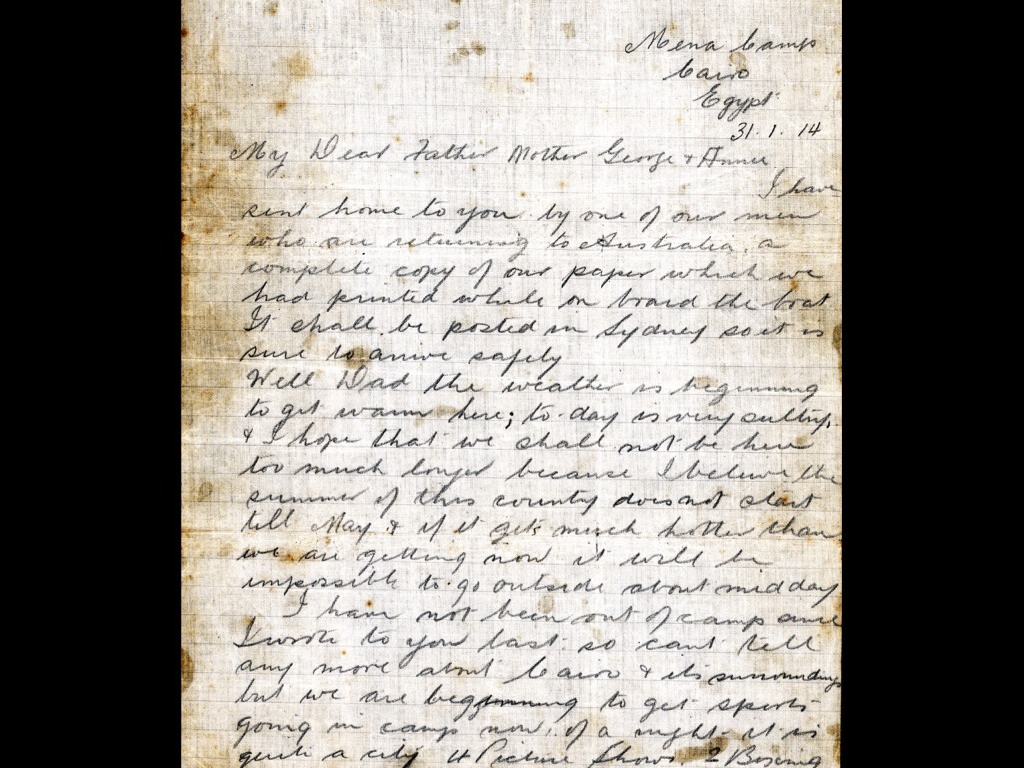 Mena Camp
Cairo
Egypt
31.1.14
My Dear Father Mother George & Annie
I have
sent home to you by one of our men
who are returning to Australia, a
complete copy of our paper which we
had printed while on board the boat
It shall be posted in Sydney so it is
sure to arrive safely
Well Dad the weather is beginning
to get warm here; to-day is very sultry,
& I hope that we shall not be here
too much longer because I believe the
summer of this country does not start
till May & if it gets much hotter than
we are getting now it will be
impossible to go outside about midday
I have not been out of camp since
I wrote to you last so cant tell
any more about Cairo & its surroundings
but we are beginning to get sports
going in camp now, of a night it is
quite a city 4 Picture Shows, 2 Boxing